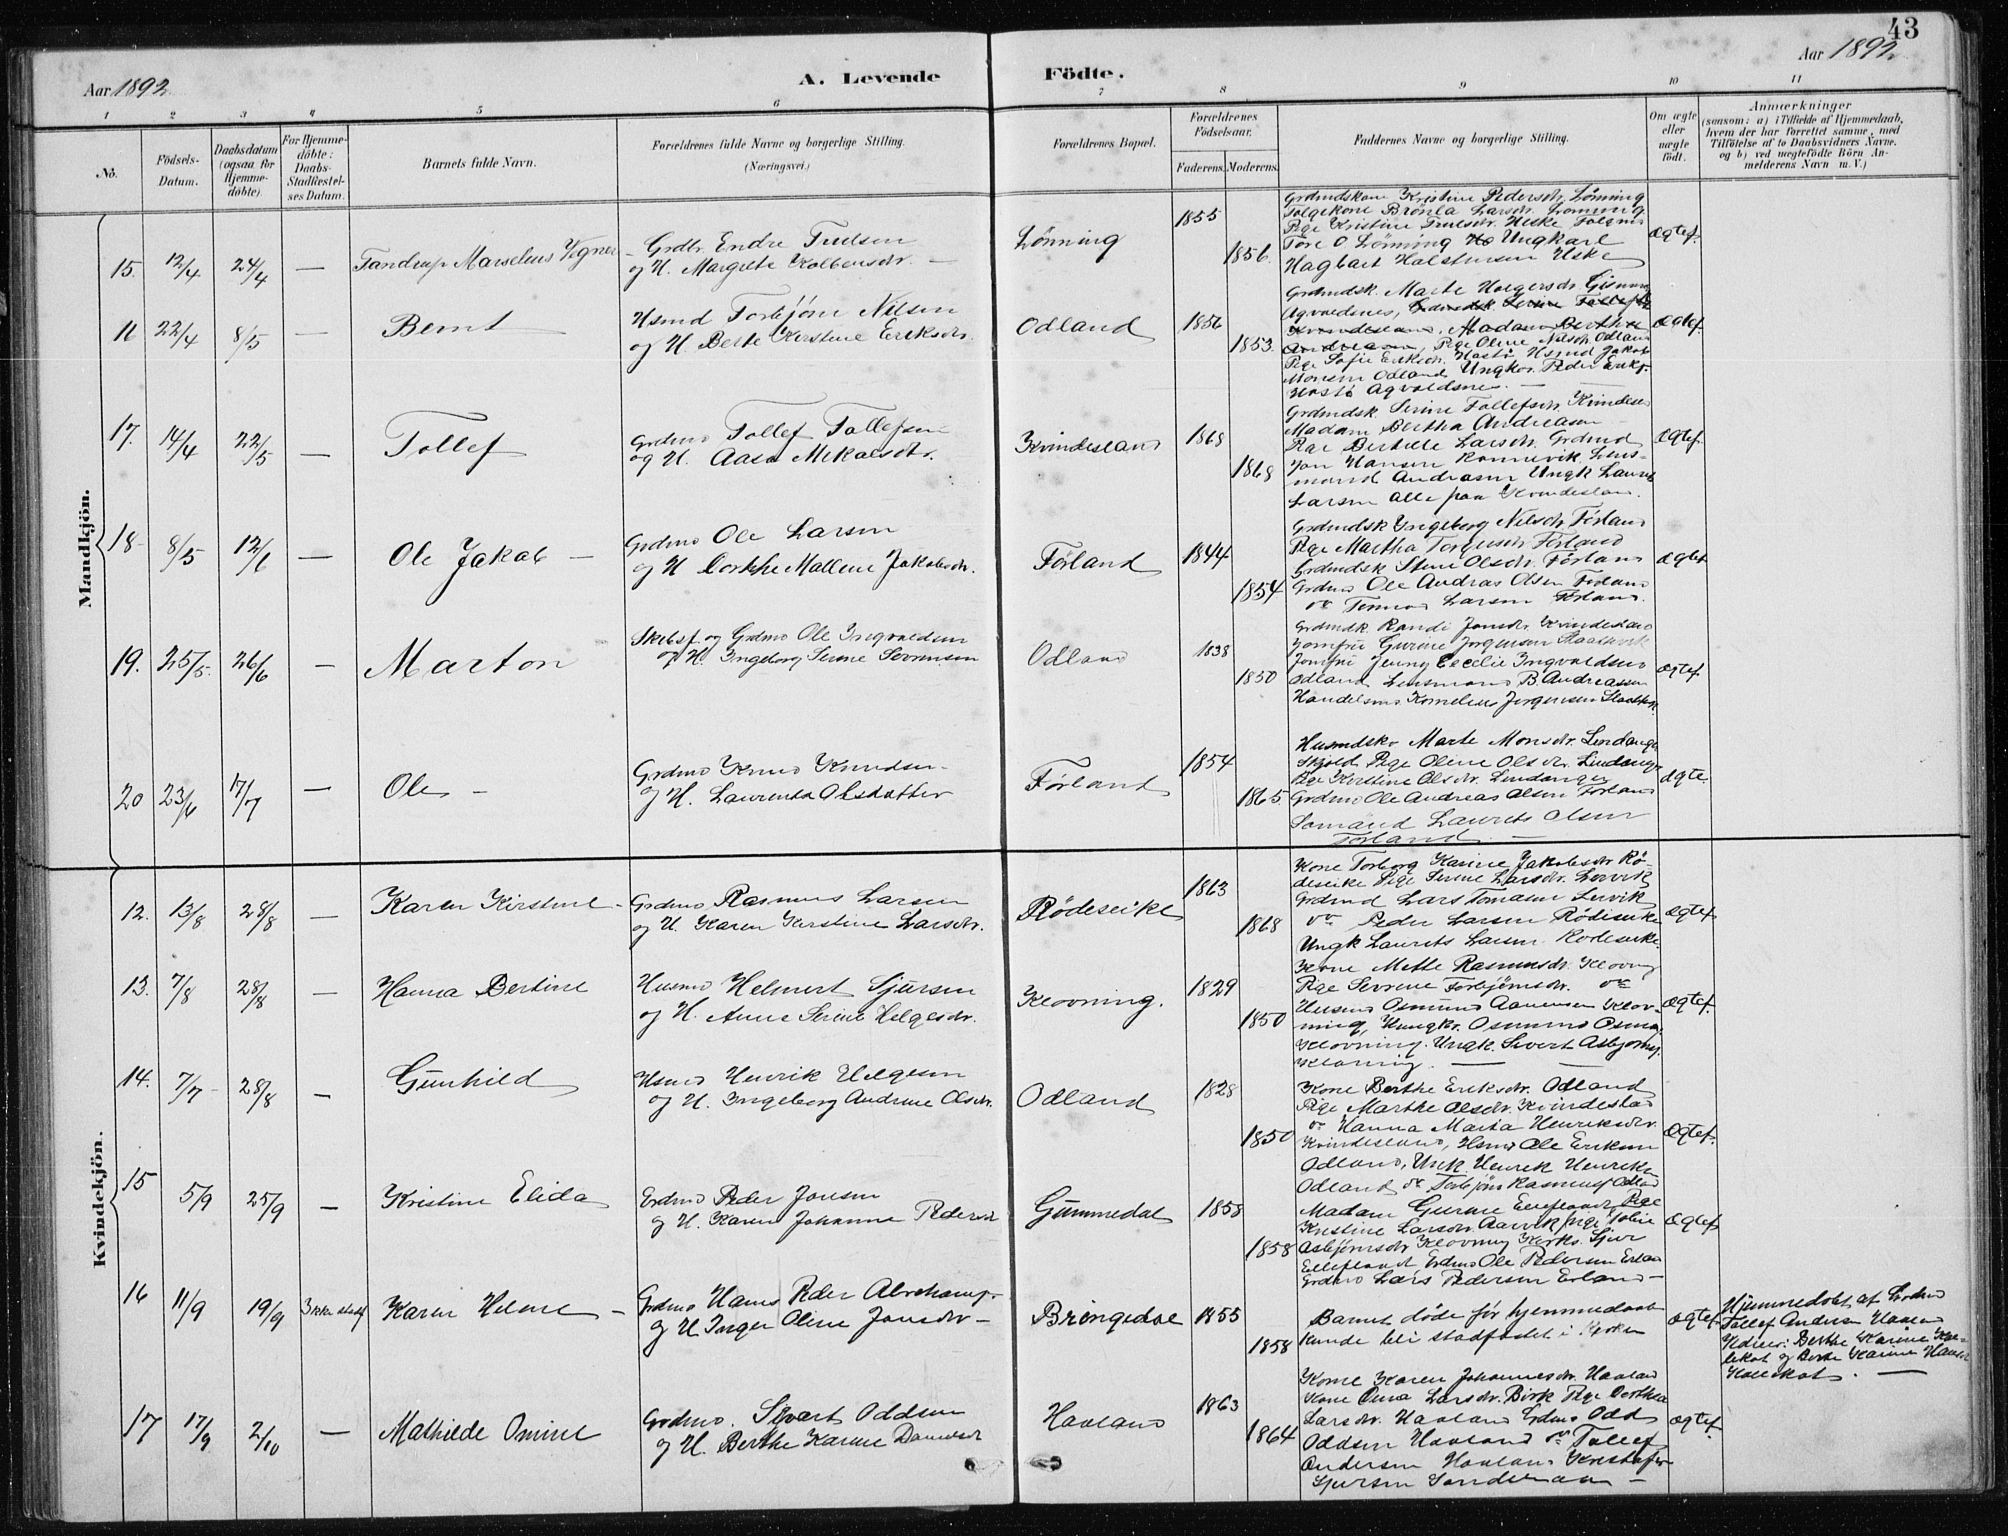 43
Aar 1892.
A. Levende
Födte.
Aar 1892.
1 2 3 4 5 6 7 8 9 10 11
No.
Födsels-
Datum.
Daabsdatum
(ogsaa for
Hjemme-
döbte).
For Hjemme-
döbte:
Daabs-
Stadfæstel-
ses Datum.
Barnets fulde Navn.
Forældrenes fulde Navne og borgerlige Stilling.
(Næringsvei.)
Forældrenes Bopæl.
Forældrenes
Födselsaar.
Faderens.
Moderens.
Faddernes Navne og borgerlige Stilling.
Om ægte
eller
uægte
födt.
Anmærkninger
(saasom: a) i Tilfælde af Hjemmedaab,
hvem der har forrettet samme, med
Tilföielse af to Daabsvidners Navne,
og b) ved uægtefödte Börn An-
melderens Navn m. V.)
Mandkjön.
15. 12/4 24/4 — Tandrup Marselius Vegner
Grdbr. Endre Truelsen
og H. Margrete Kolbensdr. —
Lönning
1855
1856.
Grdmdskone Kristine Pedersdr. Lönning
Fölgekone Brönla Larsdr. Lönning
Pige Kristine Truelsdr.
Töre O Lönning Ungkarl
Hagbart Halstensen Uske
Ægtef.
22/4 8/5 — Bernt
Hsmd Torbjörn Nilsen
og H. Berte Kirstine Eriksdr.
Odland
1856
1853.
Grdmdsk. Marte
Agvaldsnes,
Madam Berthe
Andreasen, Pige Oline Nilsdr. Odland
Pige Sofie Eriksdr. Hastö Hsmd Jakob
Monsen Odland Ungkr. Peder Eriks.
Hastö Agvaldsnes. —
Ægtef.
17. 14/4 22/5 — Tollef
Grdmd Tollef Tollefsen
og H. Aasa Mikalsdtr.
Kvindesland
1868
1868
Grdmdsk. Serine Tollefsdr. Kvindesl
Madam Bertha Andreasen
Pige Bertille Larsdr. Grdmd
Jon Hansen Rönnevik Lens-
mand Andreasen Ungk Laurits
Larsen alle paa Kvindesland.
Ægtef.
18. 8/5 12/6 — Ole Jakob —
Grdmd Ole Larsen
og H Dorthe Mallene Jakobsdr.
Förland
1844
1854
Grdmdsk Ingeborg Nilsdr. Förland
Pige Martha Torgersdr. Förland
Grdmdsk Stine Olsdr. Förland
Grdmd Ole Andreas Olsen Förland
do Larsen Förland.
Ægtef
19. 25/5. 26/6 — Marton
Skibsf og Grdmd Ole Ingvaldsen
og H. Ingeborg Serine Sörensen
Odland
1838
1850
Grdmdk. Randi Jonsdr. Kvindesland
Jomfru Gurine Jörgensen
Jomfru Jenny Cecelie Ingvaldsen
Odland Lensmand B. Andreassen
Handelsmd Kornelius Jörgensen
Ægtef.
20 23/6 17/7 — Ole —
Grdmd Knud Knudsen
og H. Laurentse Olsdatter
Förland
1854
1865
Husmdsko Marte Monsdr. Lindanger
Skjold Pige Oline Olsdr. Lindanger
Pige Kirstine Olsdr. Lindanger
Grdmd Ole Andreas Olsen Förland
Sömand Laurits Olsen
Förland —
Ægte.
Kvindekjön.
12. 13/8 28/8 — Karen Kirstine
Grdmd Rasmus Larsen
og H. Karen Kirstine Larsdr.
Rödeseike
1863
1868
Kone Torborg Karine Jakobsdr Rö-
deseike Pige Serine Larsdr. Lervik
Grdmd Lars Tomasen Lervik
do Peder Larsen Rödeseike
Ungk Laurits Larsen Rödeseike
Ægtef
13. 7/8 28/8 — Hanna Bertine
Husmd Helmert Sjursen
og H. Anne Serine Helgesdr.
Klovning.
1829
1850
Kone Mette Rasmusdr. Klovning
Pige Severine Torbjörnsdr. do
Husmd Osmund Aanensen Klov-
ning, Ungkr. Osmund
Klovning. Ungk. Sivert Asbjörns.
Klovning. — —
Ægtef.
14. 7/7 28/8 — Gunhild
Hsmd Henrik Helgesen
og H. Ingeborg Andrine Olsdr.
Odland
1828
1850
Kone Berthe Eriksdr. Odland
Pige Marthe Olsdr. Kvindesland
do Hanna Marta Henriksdr.
Kvindesland, Hsmd Ole Eriksen
Odland, Unk. Henrik Henriksen
Odland do Torbjörn Rasmus Odland
Ægtef.
15 5/9 25/9 — Kristine Elida
Grdmd Peder Jonsen
og H. Karen Johanne Pedersdr
Gummedal
1858
1858
Madam Gurine Pige
Kristine Larsdr. Aarvik Pige
Asbjörnsdr. Klovning Kirks. Sjur
Grdmd Ole Pedersen Erland
Grdmd Lars Pedersen Erland —
Ægtef
16 11/9 19/9 Ikke stadf Karen Helene —
Grdmd Hans Peder Abrahams.
og H Inger Oline Jonsdr —
Bringedal
1855
1858
Barnet döde för hjemmedaab
kunde bli stadfæstet i Kirken
Ægtef
Hjemmedöbt af Grdmd
Tollef Andersen Haaland
Vidner: Berthe Karine Kal-
lekot og Berte Karine Hansdr
Kallekot. —
17 17/9 2/10 — Mathilde Omine
Grdmd. Sivert Oddsen
og H. Berthe Karine Danielsdr
Haaland
1863
1864
Kone Karen Johannesdr. Haaland
Kone Anna Larsdr. Birk Pige Dorthea
Larsdr. Haaland Grdmd Odd
Oddsen Haaland do Tollef
Andersen Haaland Kristofer
Sjursen —
Ægtef.